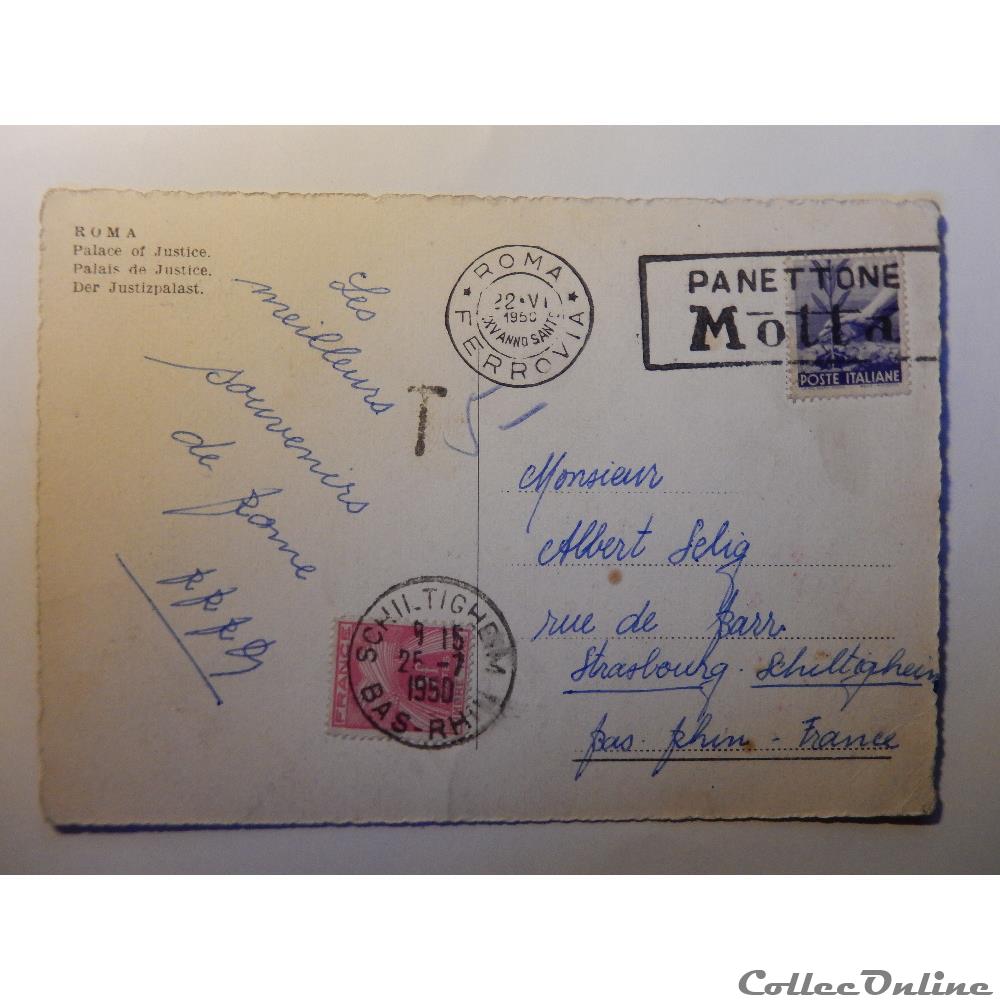 ROMA
Palace of Justice.
Palais de Justice.
Der Justizpalast.
Les
meilleurs
souvenirs
de Rome
ROMA
22·VI
1950
XXV ANNO SANTO
FERROVIA
PANETTONE
Motta
POSTE ITALIANE
T
Monsieur
Albert Selig
rue de Barr
Strasbourg - Schiltigheim
Bas Rhin - France
SCHILTIGHEIM
9 15
25-7
1950
BAS-RHIN
FRANCE
CollecOnline